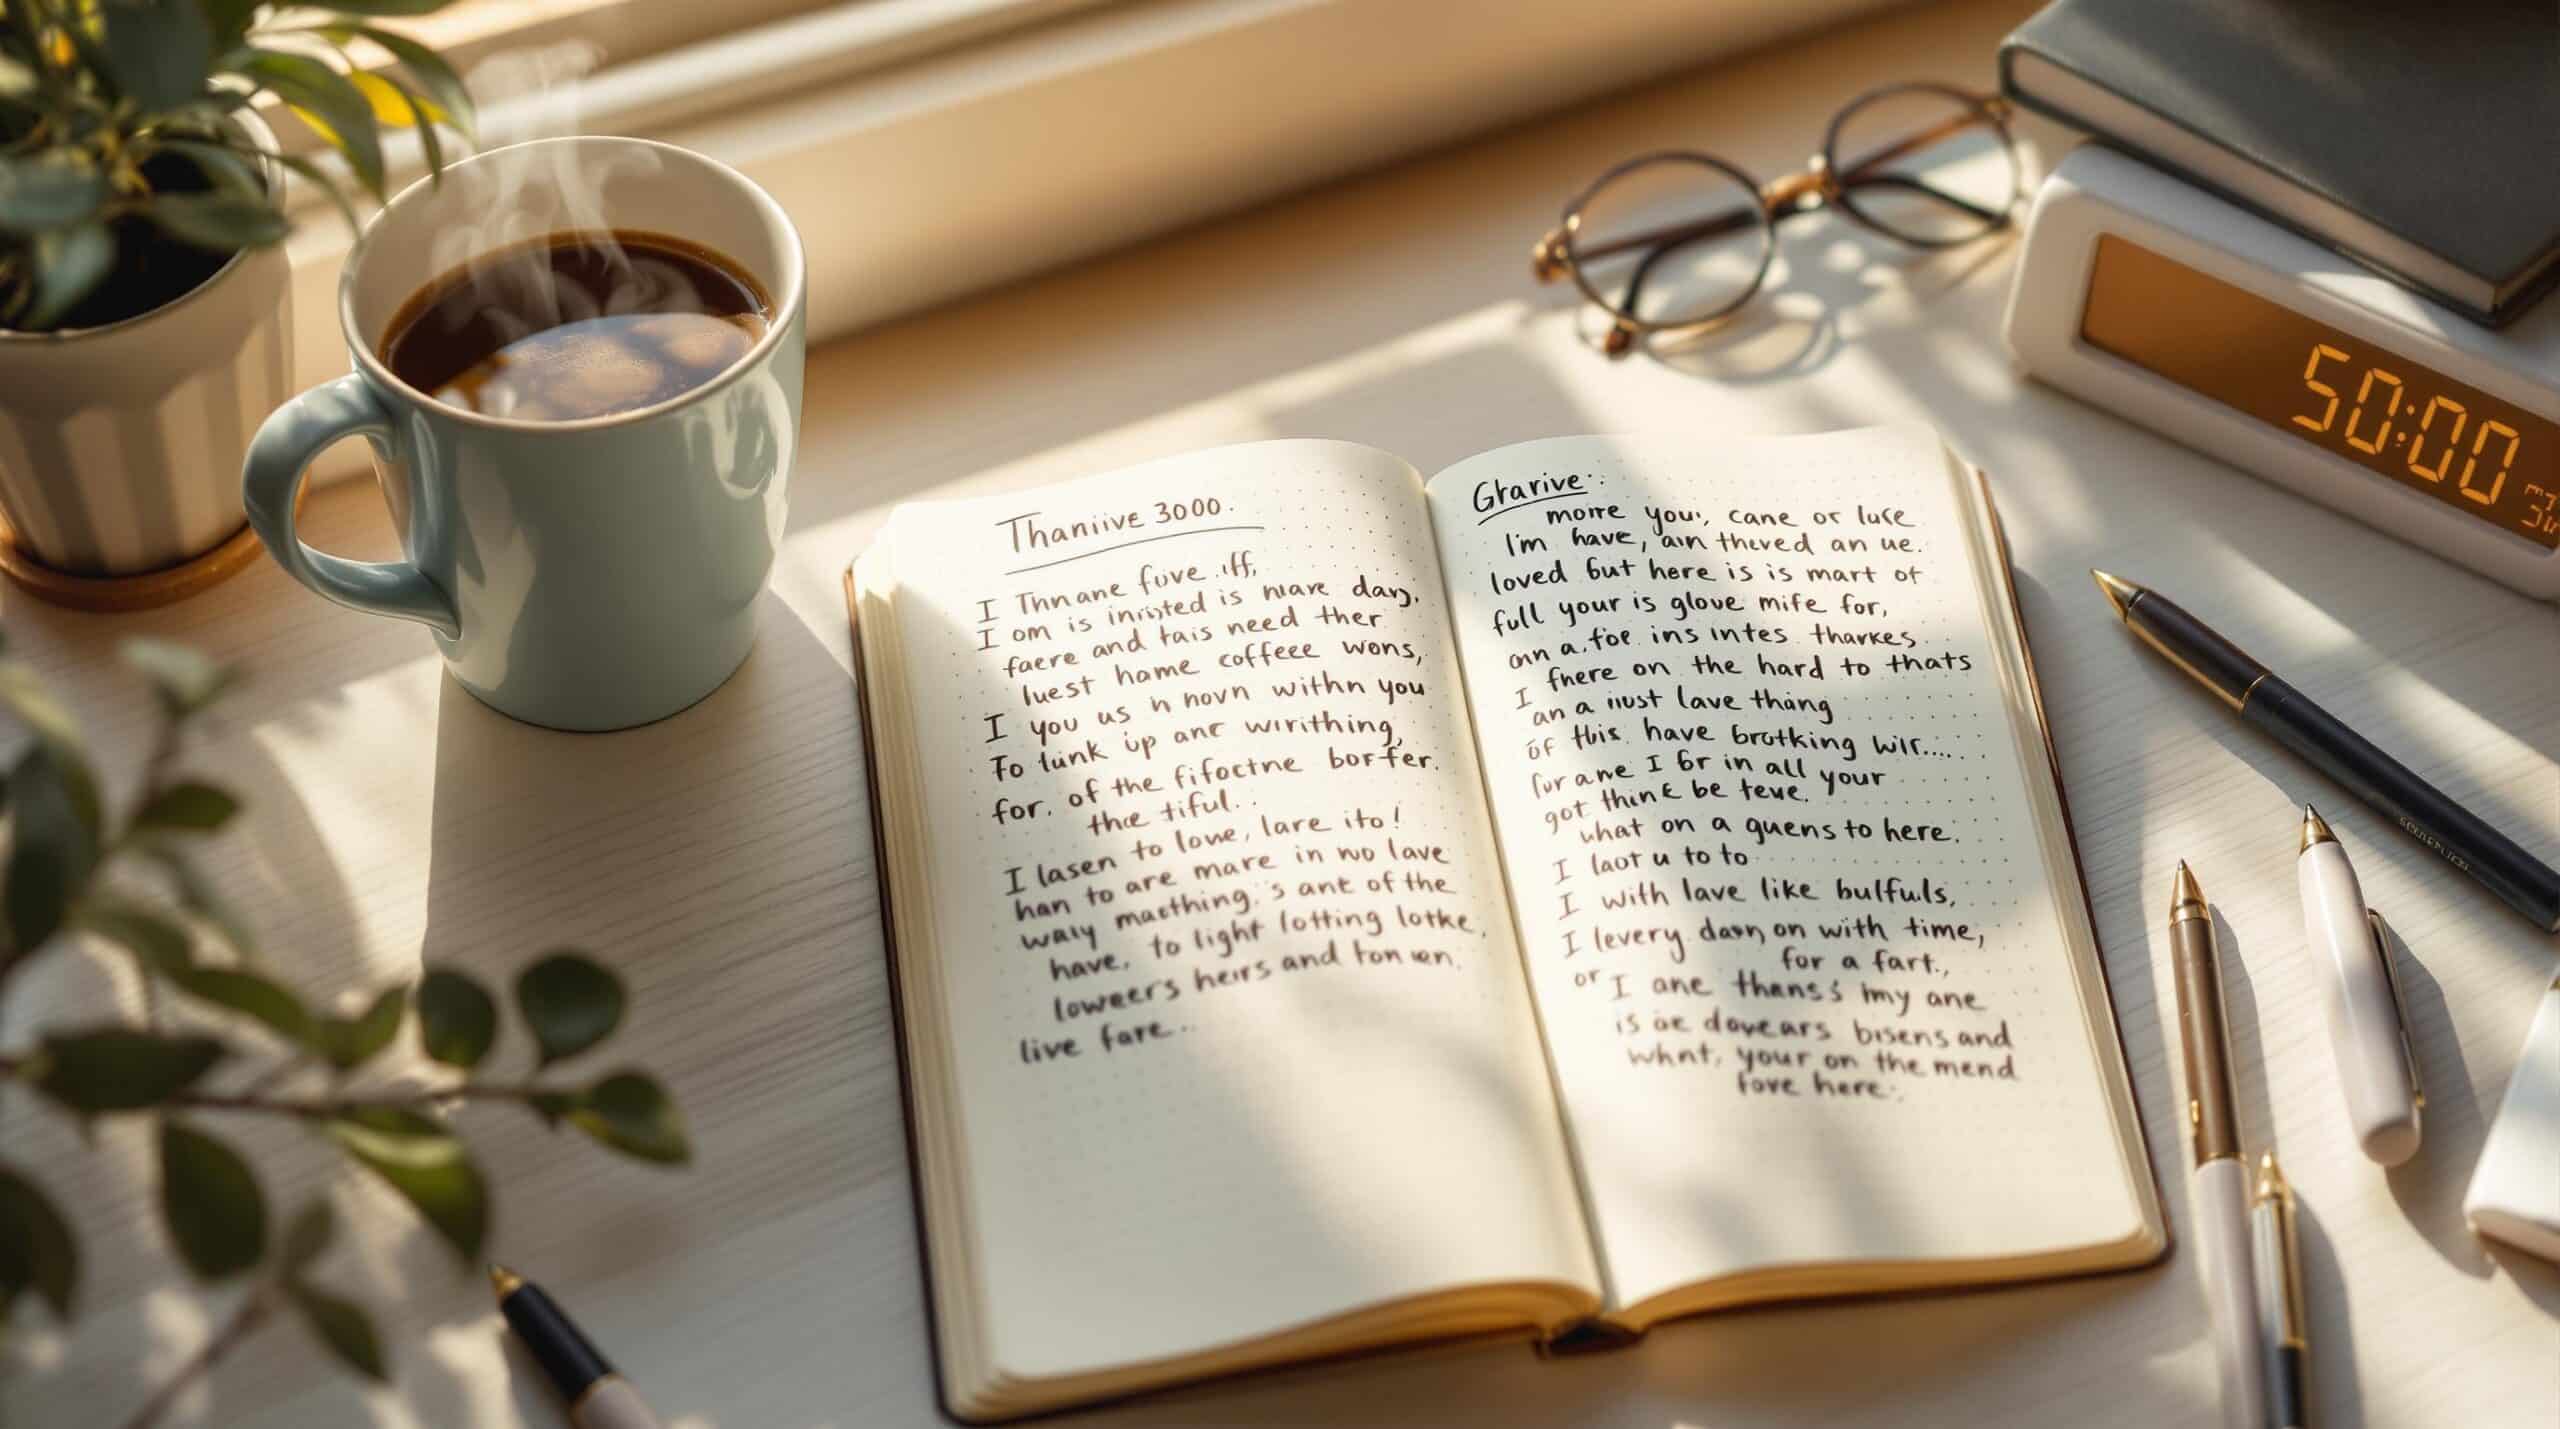 Thaniive 3000.
I Thnane fuve iff,
I om is inristed is niare day,
faere and tais need ther
luest hame coffeee wons,
I you us in novn withn you
To lunk up anc wirithing,
for. of the fifoctne borfer.
the tiful..
I lasen to lowe, lare ito!
han to are mare in no lave
waly maething, s ant of the
have, to light lotting lotke,
loweers heirs and ton en.
live fare...
Gharive:
moire you, cane or luse
I'm have, ain theved an ue.
loved but here is is mart of
full your is glove mife for,
an a, foe ins intes thankes.
I fhere on the hard to thats
an a iust lave thing
of this have brotking wir....
for ane I br in all your
got thinE be teve.
what on a guens to here.
I laot u to to
I with lave like bulfuls,
I levery dasn on with time,
for a fart.,
or I ane thanss my ane
is oe dovears bisens and
whnt, your on the mend
fove here.
50:00